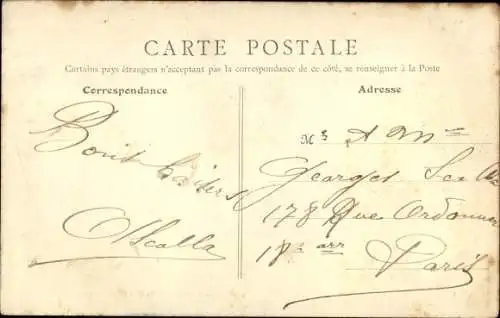 CARTE POSTALE
Certains pays étrangers n'acceptent pas la correspondance de ce côté, se renseigner à la Poste
Correspondance
Adresse
Bons baisers
M^s A M^me
Georges
178 Rue Ordener
18^e arr
Paris